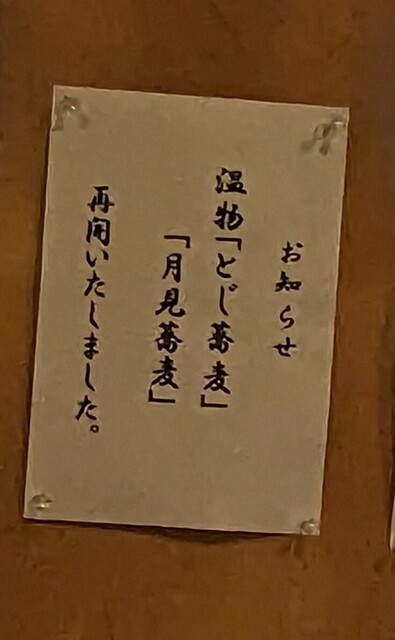 お知らせ
温物「とじ蕎麦」
「月見蕎麦」
再開いたしました。